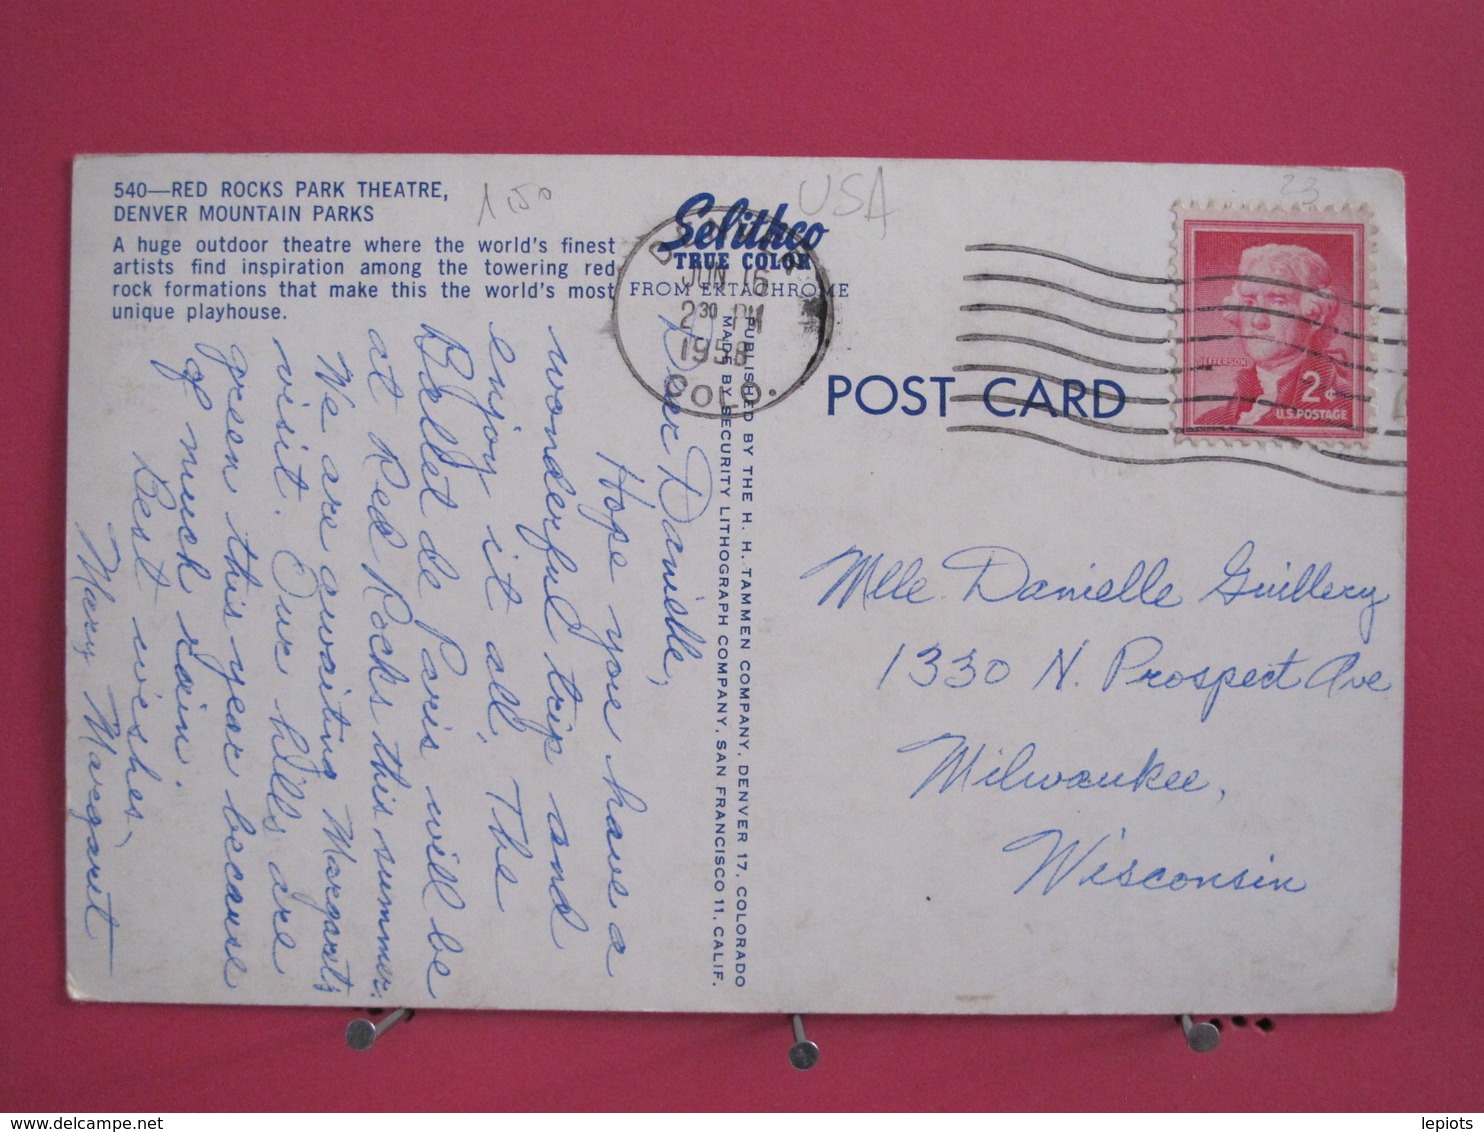 540—RED ROCKS PARK THEATRE,
DENVER MOUNTAIN PARKS
A huge outdoor theatre where the world's finest
artists find inspiration among the towering red
rock formations that make this the world's most
unique playhouse.
1,50
USA
23
Selithco
TRUE COLOR
FROM EKTACHROME
JUN 16
2 30 PM
1958
COLO.
POST CARD
JEFFERSON
2¢
U.S. POSTAGE
PUBLISHED BY THE H. H. TAMMEN COMPANY, DENVER 17, COLORADO
MADE BY SECURITY LITHOGRAPH COMPANY, SAN FRANCISCO 11, CALIF.
Dear Danielle,
Hope you have a
wonderful trip and
enjoy it all. The
Ballet de Paris will be
at Red Rocks this summer.
We are awaiting Margaret's
visit. Our hills are
green this year because
of much rain.
Best wishes,
Mary Margaret
Mlle. Danielle Guillery
1330 N. Prospect Ave
Milwaukee,
Wisconsin
lepiots